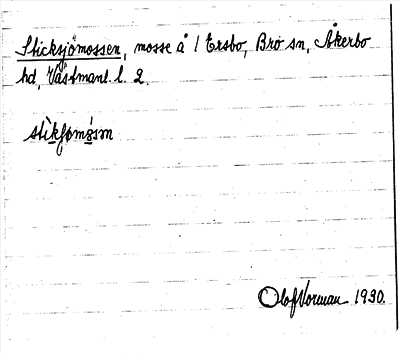 Sticksjömossen, mosse å 1 Ersbo, Bro sn, Åkerbo
hd, Västmanl. l. 2.
Olof Norman 1930.